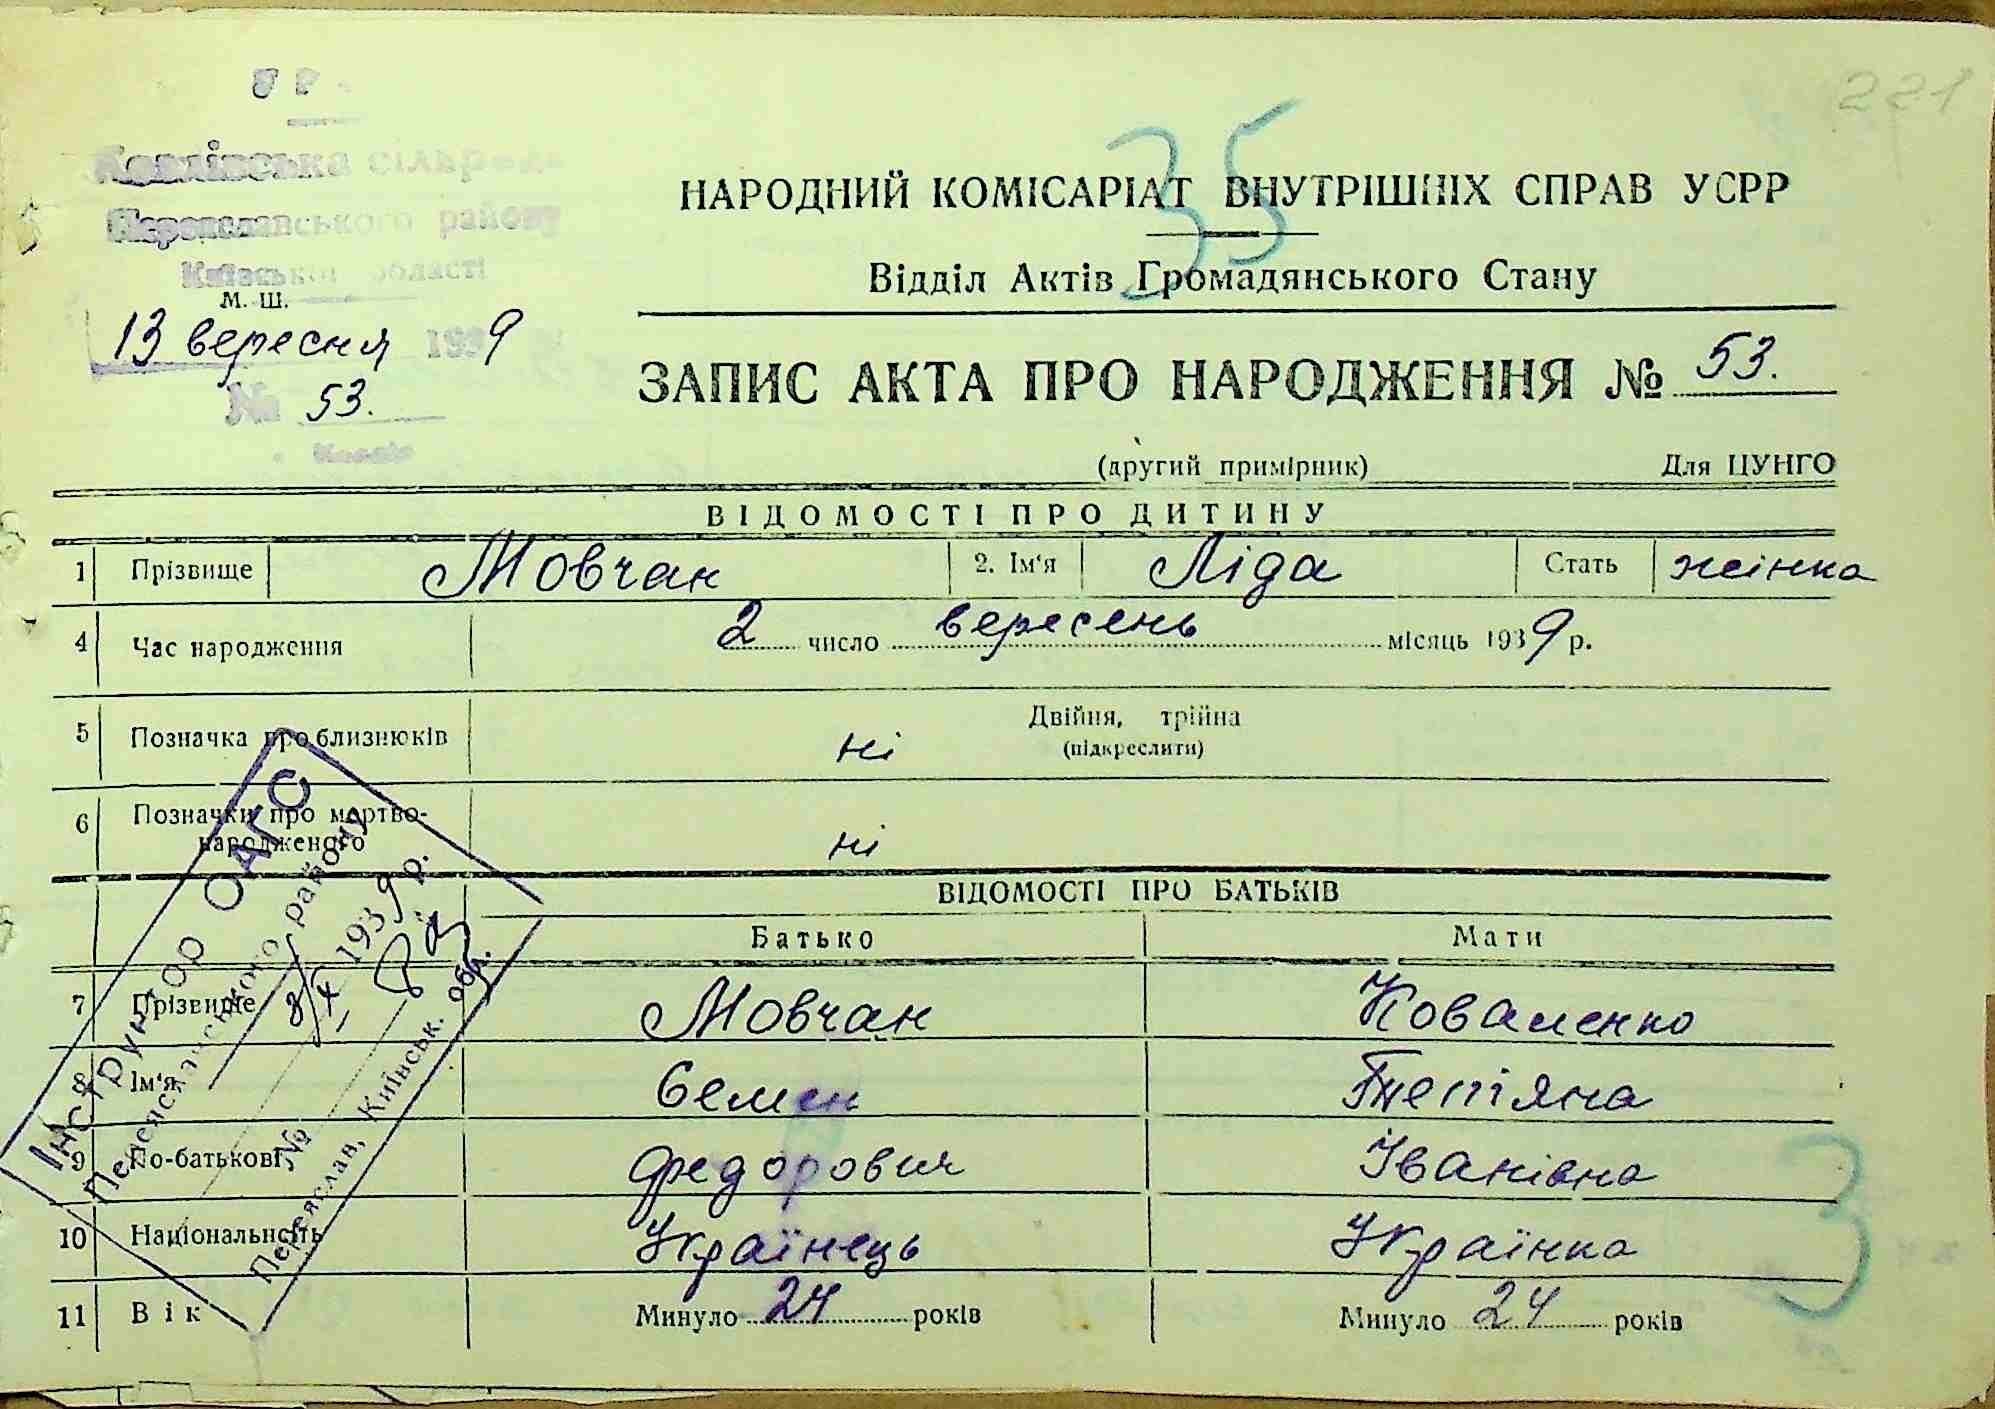 221
35
Ковлівська сільрада
Переяславського району
Київської області
М. Ш.
13 вересня 1939
№ 53.
НАРОДНИЙ КОМІСАРІАТ ВНУТРІШНІХ СПРАВ УСРР
Відділ Актів Громадянського Стану
ЗАПИС АКТА ПРО НАРОДЖЕННЯ № 53.
(другий примірник) Для ЦУНГО
ВІДОМОСТІ ПРО ДИТИНУ
1 Прізвище Мовчан 2. Ім'я Ліда Стать жінка
4 Час народження 2 число вересень місяць 1939 р.
5 Позначка про близнюків ні Двійня, трійна
(підкреслити)
6 Позначки про мертво-
народженого ні
ВІДОМОСТІ ПРО БАТЬКІВ
Батько Мати
7 Прізвище Мовчан Коваленко
8 Ім'я Семен Тетіяна
9 По-батькові Федорович Іванівна
10 Національність Українець Українка
11 Вік Минуло 24 років Минуло 24 років
Інструктор ОАГС
Переяславського району
8/X 1939 р.
№
Переяслав, Київськ. обл.
3